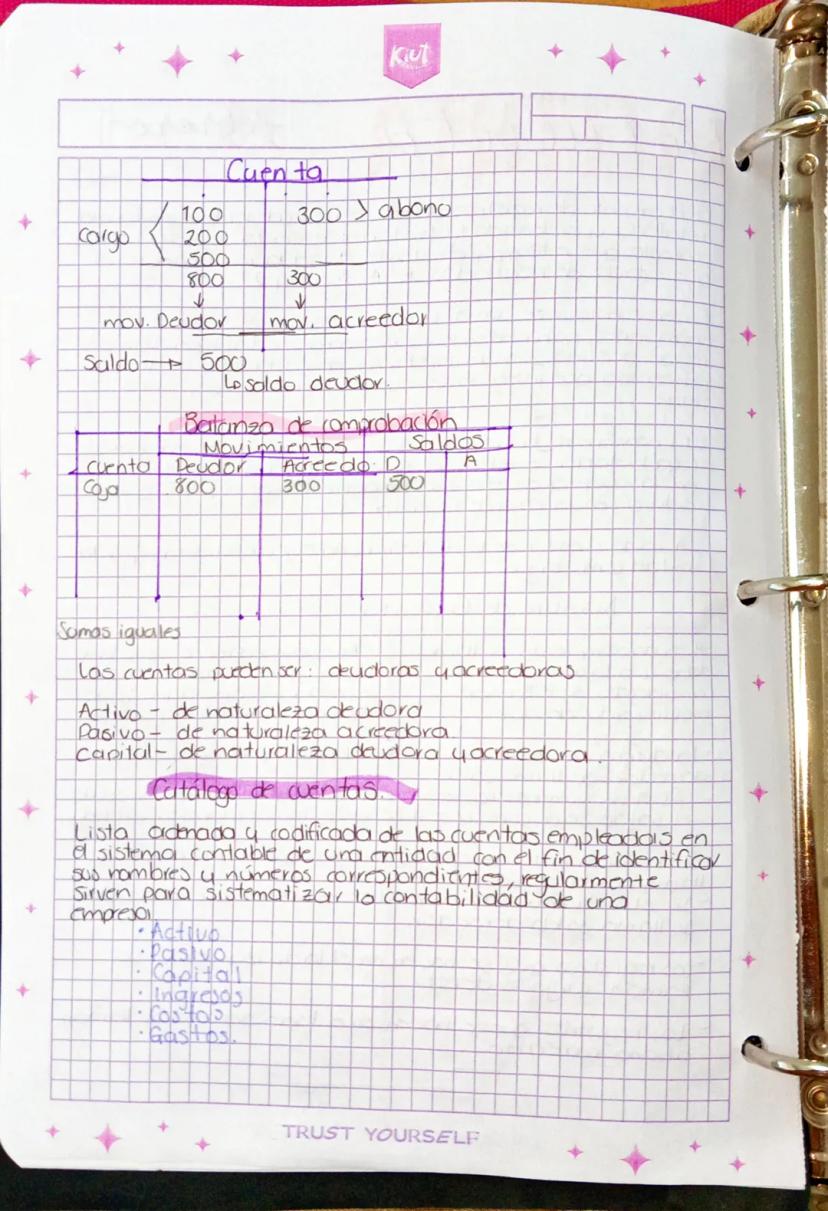 Kiut
Cuenta
cargo 100 300 > abono
200
500
800 300
mov. Deudor mov. acreedor
Saldo → 500
↳ saldo deudor.
Balanza de comprobación
Movimientos Saldos
cuenta Deudor Acreedo. D A
Caja 800 300 500
Somas iguales
Las cuentas pueden ser: deudoras y acreedoras
Activo - de naturaleza deudora
Pasivo - de naturaleza acreedora
Capital - de naturaleza deudora y acreedora.
Catálogo de cuentas.
Lista ordenada y codificada de las cuentas empleadas en
el sistema contable de una entidad con el fin de identificar
sus nombres y números correspondientes, regularmente
sirven para sistematizar la contabilidad de una
empresa
• Activo
• Pasivo
• Capital
• Ingresos
• Costos
• Gastos.
TRUST YOURSELF